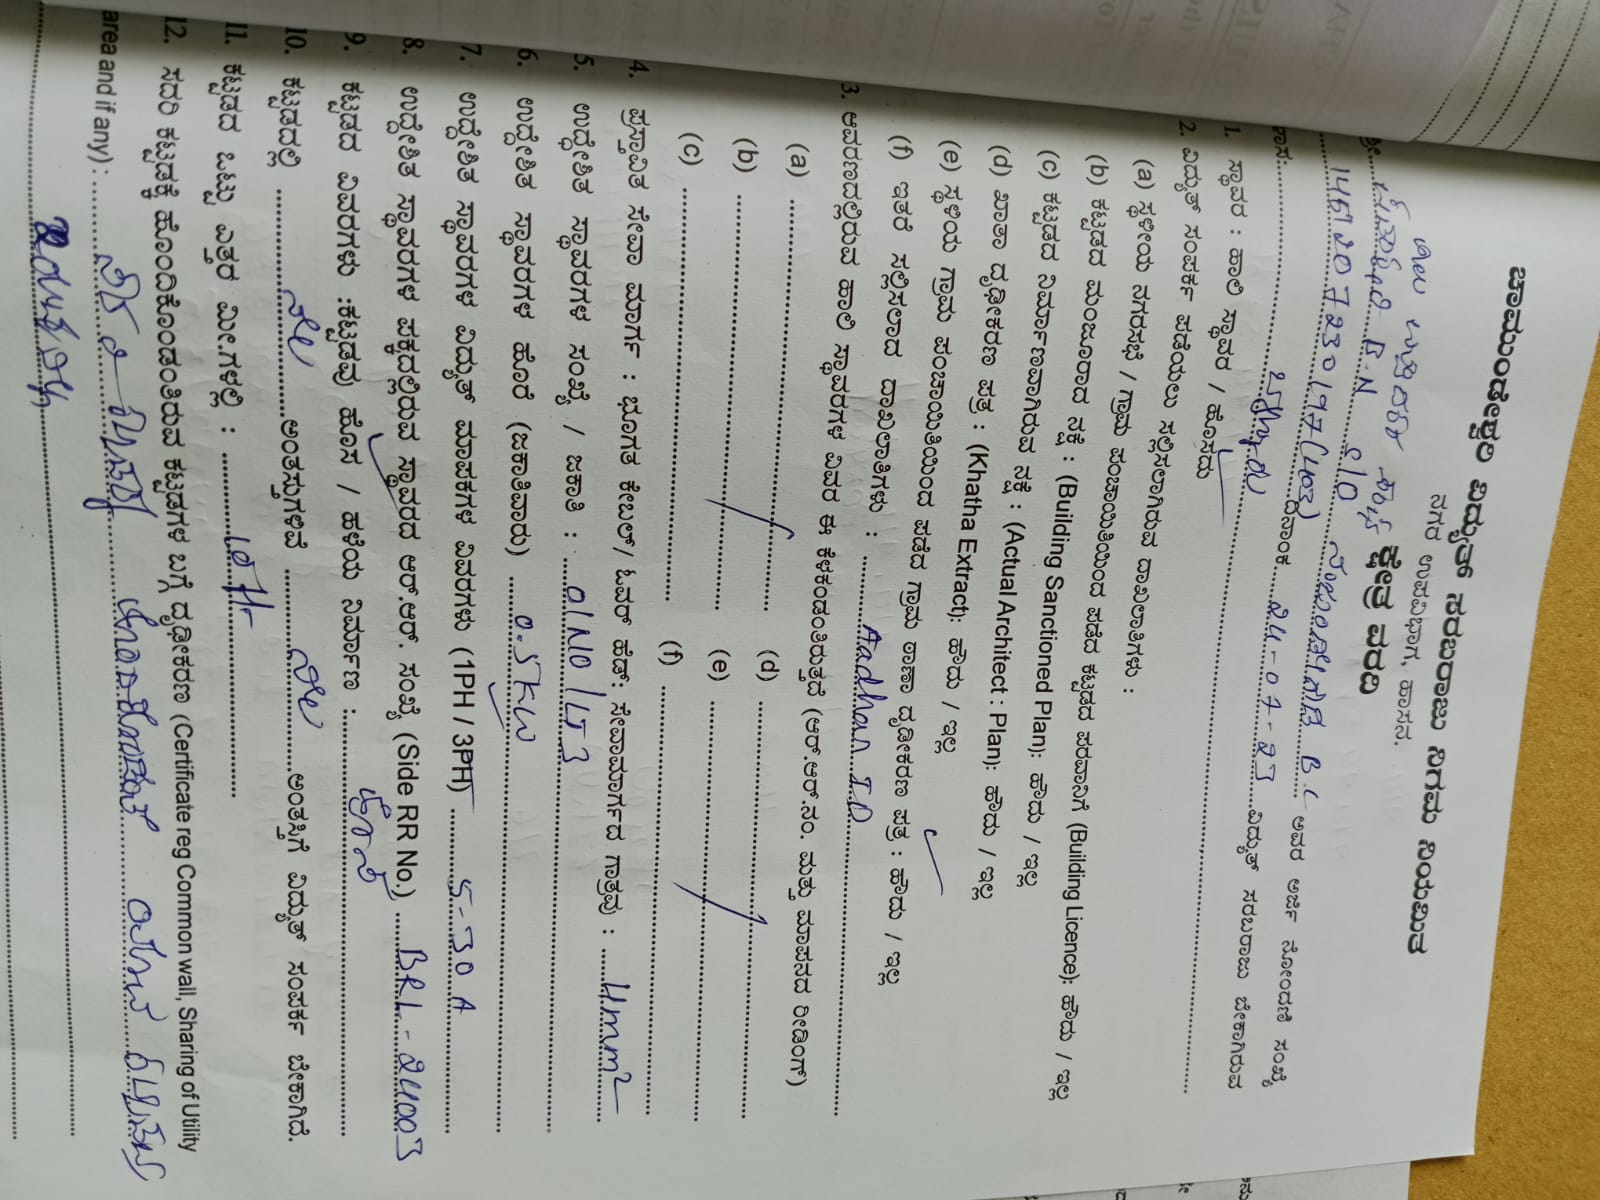 ಚಾಮುಂಡೇಶ್ವರಿ ವಿದ್ಯುತ್ ಸರಬರಾಜು ನಿಗಮ ನಿಯಮಿತ
ನಗರ ಉಪವಿಭಾಗ, ಹಾಸನ.
ಕ್ಷೇತ್ರ ವರದಿ
B.N S/O B.C ಅವರ ಅರ್ಜಿ ನೋಂದಣಿ ಸಂಖ್ಯೆ
1467207230197 ದಿನಾಂಕ 24-07-23 ವಿದ್ಯುತ್ ಸರಬರಾಜು ಬೇಕಾಗಿರುವ
1. ಸ್ಥಾವರ : ಹಾಲಿ ಸ್ಥಾವರ / ಹೊಸದು
2. ವಿದ್ಯುತ್ ಸಂಪರ್ಕ ಪಡೆಯಲು ಸಲ್ಲಿಸಲಾಗಿರುವ ದಾಖಲಾತಿಗಳು :
(a) ಸ್ಥಳೀಯ ನಗರಸಭೆ / ಗ್ರಾಮ ಪಂಚಾಯಿತಿಯಿಂದ ಪಡೆದ ಕಟ್ಟಡದ ಪರವಾನಿಗೆ (Building Licence): ಹೌದು / ಇಲ್ಲ
(b) ಕಟ್ಟಡದ ಮಂಜೂರಾದ ನಕ್ಷೆ : (Building Sanctioned Plan): ಹೌದು / ಇಲ್ಲ
(c) ಕಟ್ಟಡದ ನಿರ್ಮಾಣವಾಗಿರುವ ನಕ್ಷೆ : (Actual Architect : Plan): ಹೌದು / ಇಲ್ಲ
(d) ಖಾತಾ ದೃಢೀಕರಣ ಪತ್ರ : (Khatha Extract): ಹೌದು / ಇಲ್ಲ
(e) ಸ್ಥಳೀಯ ಗ್ರಾಮ ಪಂಚಾಯಿತಿಯಿಂದ ಪಡೆದ ಗ್ರಾಮ ಠಾಣಾ ದೃಢೀಕರಣ ಪತ್ರ : ಹೌದು / ಇಲ್ಲ
(f) ಇತರೆ ಸಲ್ಲಿಸಲಾದ ದಾಖಲಾತಿಗಳು : Aadhar ID
3. ಆವರಣದಲ್ಲಿರುವ ಹಾಲಿ ಸ್ಥಾವರಗಳ ವಿವರ ಈ ಕೆಳಕಂಡಂತಿರುತ್ತದೆ (ಆರ್.ಆರ್.ನಂ. ಮತ್ತು ಮಾಪನದ ರೀಡಿಂಗ್)
(a) (d)
(b) (e)
(c) (f)
4. ಪ್ರಸ್ತಾವಿತ ಸೇವಾ ಮಾರ್ಗ : ಭೂಗತ ಕೇಬಲ್/ ಓವರ್ ಹೆಡ್: ಸೇವಾಮಾರ್ಗದ ಗಾತ್ರವು : 4mm²
5. ಉದ್ದೇಶಿತ ಸ್ಥಾವರಗಳ ಸಂಖ್ಯೆ / ಜಕಾತಿ : 01NO/LT3
6. ಉದ್ದೇಶಿತ ಸ್ಥಾವರಗಳ ಹೊರೆ (ಜಕಾತಿವಾರು) 0.5KW
7. ಉದ್ದೇಶಿತ ಸ್ಥಾವರಗಳ ವಿದ್ಯುತ್ ಮಾಪಕಗಳ ವಿವರಗಳು (1PH / 3PH) 5-30 A
8. ಉದ್ದೇಶಿತ ಸ್ಥಾವರಗಳ ಪಕ್ಕದಲ್ಲಿರುವ ಸ್ಥಾವರದ ಆರ್.ಆರ್. ಸಂಖ್ಯೆ (Side RR No.) BRL-24003
9. ಕಟ್ಟಡದ ವಿವರಗಳು :ಕಟ್ಟಡವು ಹೊಸ / ಹಳೆಯ ನಿರ್ಮಾಣ :
10. ಕಟ್ಟಡದಲ್ಲಿ ನೆಲ ಅಂತಸ್ತುಗಳಿವೆ ನೆಲ ಅಂತಸ್ತಿಗೆ ವಿದ್ಯುತ್ ಸಂಪರ್ಕ ಬೇಕಾಗಿದೆ.
11. ಕಟ್ಟಡದ ಒಟ್ಟು ಎತ್ತರ ಮೀ.ಗಳಲ್ಲಿ :
12. ಸದರಿ ಕಟ್ಟಡಕ್ಕೆ ಹೊಂದಿಕೊಂಡಂತಿರುವ ಕಟ್ಟಡಗಳ ಬಗ್ಗೆ ದೃಢೀಕರಣ (Certificate reg Common wall, Sharing of Utility
area and if any) :